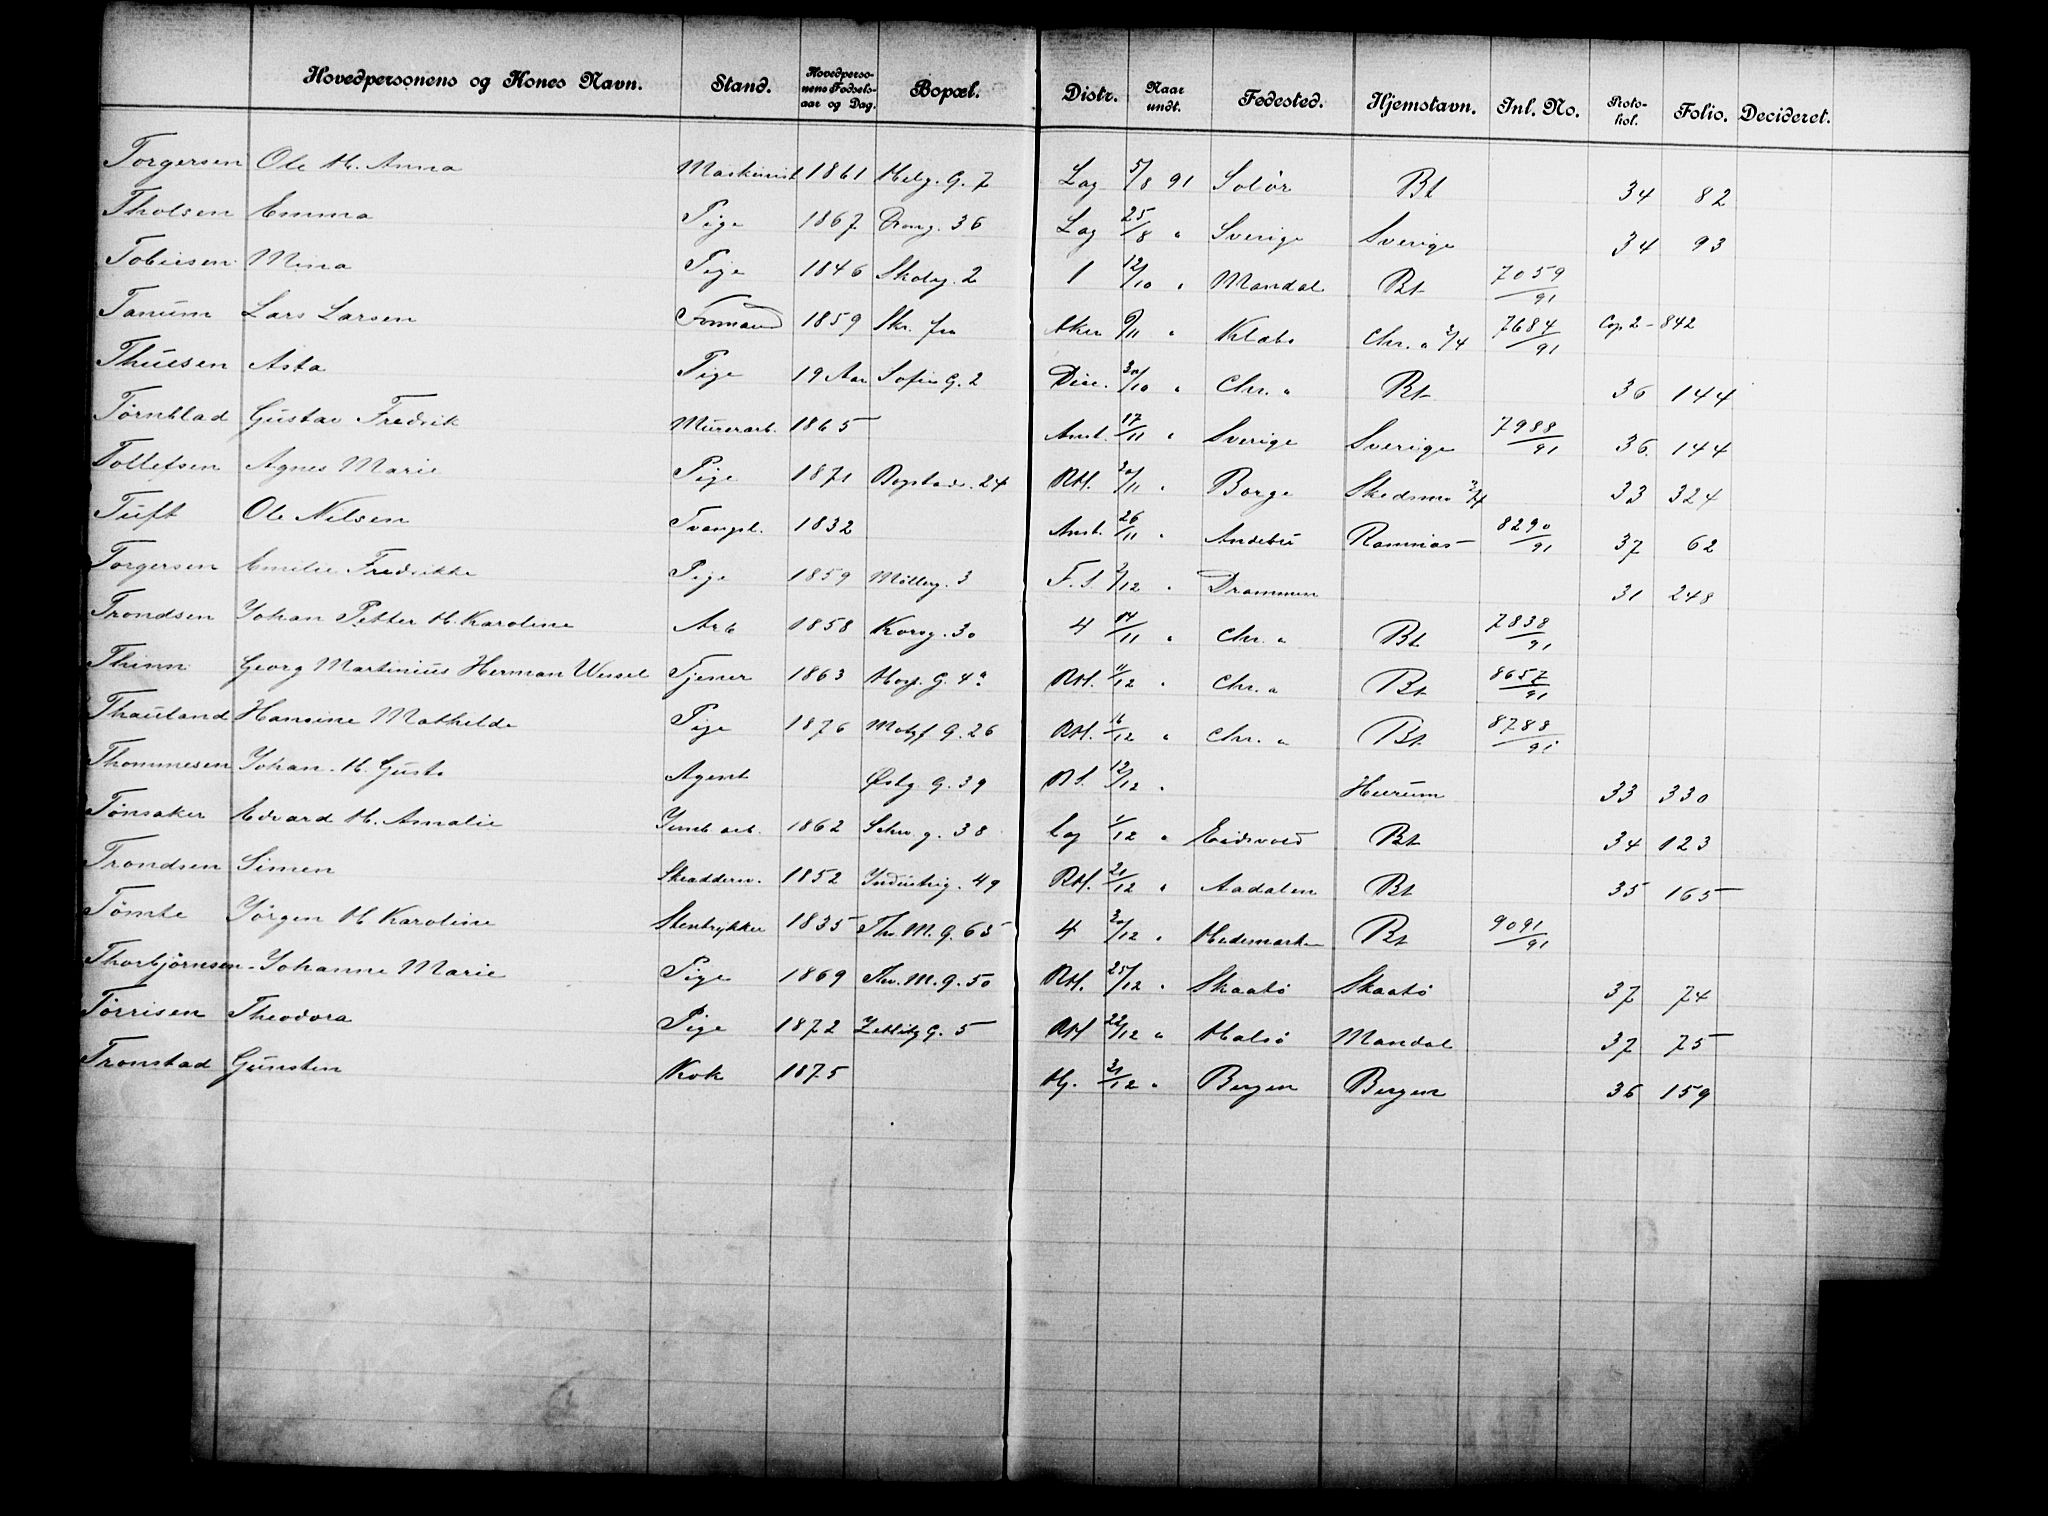 Hovedpersonens og Kones Navn. Stand. Hovedpersonens Fødselsaar og Dag. Bopæl. Distr. Naar undt. Fødested. Hjemstavn. Inl. No. Protokol. Folio. Decideret.
Torgersen Ole H. Anna Maskinist 1861 Helg. G. 7 Lag 5/8 91 Solør Bt 34 82
Tholsen Emma Pige 1867 36 Lag 25/8 " Sverige Sverige 34 93
Tobiesen Mina Pige 1846 Skoleg. 2 1 12/10 " Mandal Bt 7059/91
Tanum Lars Larsen Formand 1859 Skr. fra Aker 9/11 " Klæbo Chr. a 2/4 7684/91 Cop. 2 - 842
Thuesen Asta Pige 19 Aar Sofies G. 2 Disc. 30/10 " Chr. a Bt 36 144
Tørnblad Gustav Fredrik Murerarb. 1865 Anst. 17/11 " Sverige Sverige 7988/91 36. 144
Tollefsen Agnes Marie Pige 1871 Bogstadv. 24 RH. 20/11 " Borge Skedsmo 2/4 33 324
Tuft Ole Nilsen Tvangsl. 1832 Anst. 26/11 " Andebu Ramnæs 8290/91 37 62
Torgersen Emilie Fredrikke Pige 1859 Mølleg. 3 F. S. 2/12 " Drammen 31 248
Trondsen Johan Petter H. Karoline Arb 1858 Korsg. 30 4 14/11 " Chr. a Bt 7838/91
Thinn Georg Martinius Herman Wessel Tjener 1863 Hosp. G. 4a RH. 11/12 " Chr. a Bt 8657/91
Thauland Hansine Mathilde Pige 1876 Motzf G. 26 RH. 16/12 " Chr. a Bt 8788/91
Thommesen Johan H. Gusta Agent Østg G. 39 12/12 " Hurum 33 330
Tønsaker Edvard H. Amalie Jernb arb. 1862 Schw. g. 38 Lag 1/12 " Eidsvold Bt 34 123
Trondsen Simen Skodderm. 1852 Industrig. 49 RH. 21/12 " Aadalen Bt 35 165
Tømte Jørgen H Karoline Stentrykker 1835 Th. M. G. 65 4 30/12 " Hedemarken Bt 9091/91
Thorbjørnsen Johanne Marie Pige 1869 Th. M. g. 50 RH. 25/12 " Skaatø Skaatø 37 74
Tørrisen Theodora Pige 1872 Zetlitz G. 5 RH 22/12 " Halsø Mandal 37 75
Tronstad Gunsten Kok 1875 Hj. 31/12 " Bergen Bergen 36 159